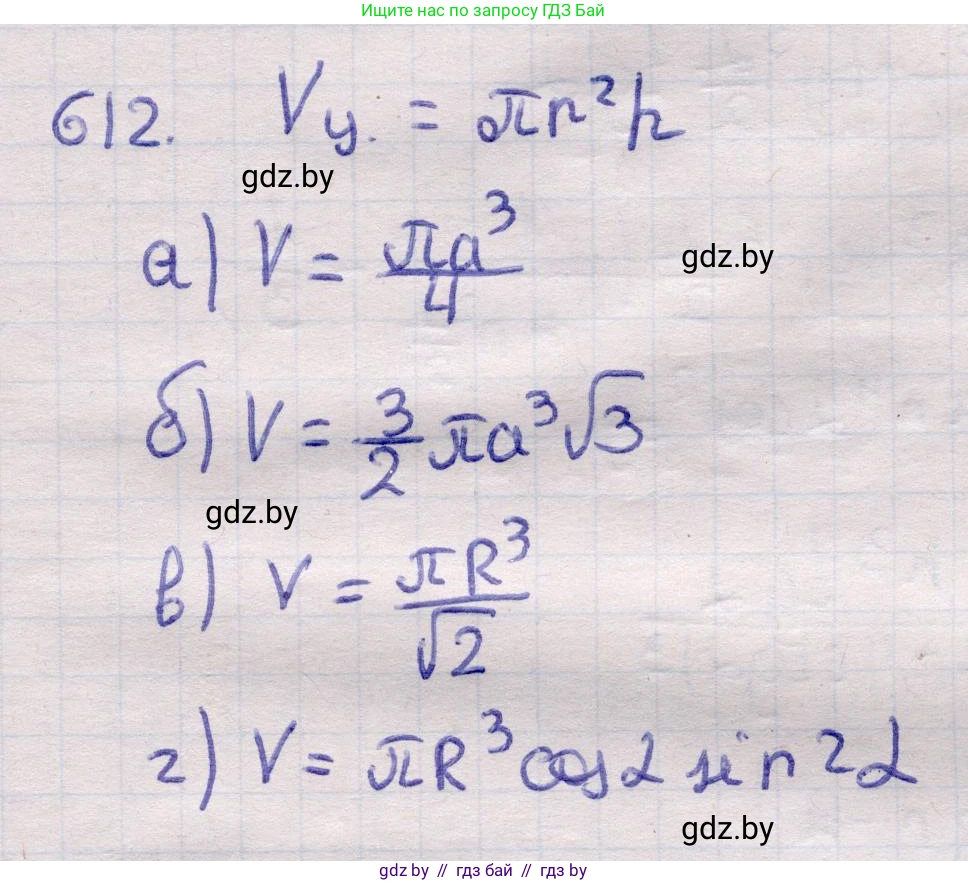 Ищите нас по запросу ГДЗ Бай
612. Vц. = πr²h
gdz.by
а) V = πa³/4
gdz.by
б) V = 3/2 πa³√3
gdz.by
в) V = πR³/√2
г) V = πR³ cos α sin² α
gdz.by
gdz.by // гдз бай // gdz by